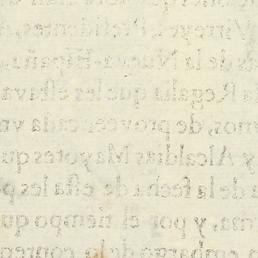 Virrey, Presidentes, A
as de la Nueva-España
la Regalia que les estava
nos, de proveer cada vn
y Alcaldias Mayores qu
a de la fecha de esta les p
rma, y por el tiempo qu
embargo de lo conten